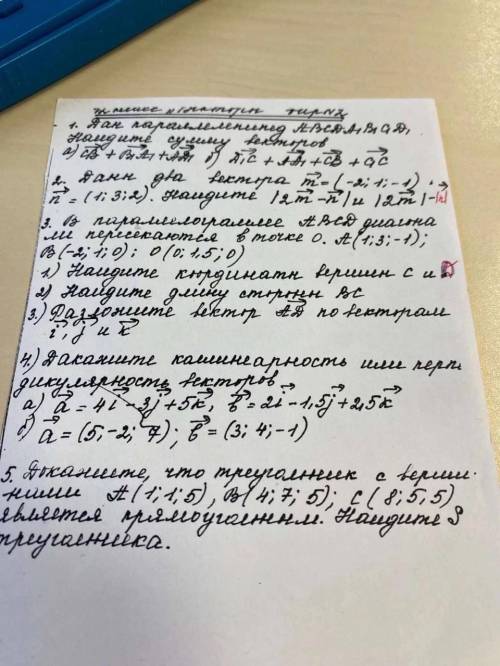 1. Дан параллелепипед ABCDA₁B₁C₁D₁
Найдите сумму векторов
а) CB + BA₁ + AD₁ б) D₁C + AA₁ + CB + C₁C
2. Даны два вектора m = (-2; 1; -1)
n = (1; 3; 2). Найдите |2m - n| и |2m| -
3. В параллелограмме ABCD диагона
ли пересекаются в точке O. A(1; 3; -1);
B(-2; 1; 0); O(0; 1,5; 0)
1) Найдите координаты вершин C и
2) Найдите длину стороны BC
3.) Разложите вектор AD по векторам
i, j и k
4.) Дакажите калинеарность или перпен
дикулярность векторов
а) a = 4i - 3j + 5k, b = 2i - 1,5j + 2,5k
б) a = (5; -2; 7); b = (3; 4; -1)
5. Докажите, что треугольник с верши
нами A(1; 1; 5), B(4; 7; 5); C(8; 5; 5)
является прямоугольным. Найдите S
треугольника.